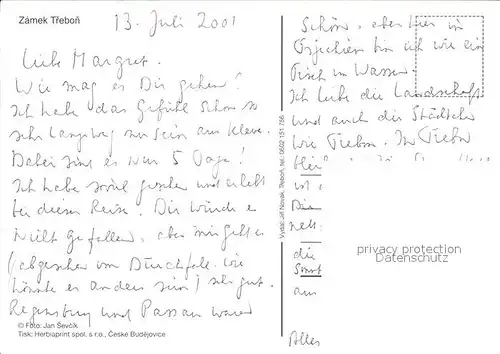 Zámek Třeboň
13. Juli 2001
Liebe Margret.
Wie mag es Dir gehen?
Ich habe das Gefühl schon so
sehr lang weg zu sein aus Kleve.
Dabei sind es nur 5 Tage!
Ich habe soviel gesehen und erlebt
bei dieser Reise. Dir würde es
nicht gefallen, aber mir geht es
(abgesehen vom Durchfall. wie
könnte es anders sein) sehr gut.
Regensburg und Passau waren
© Foto: Jan Ševčík
Tisk: Herbiaprint spol. s r.o., České Budějovice
Vydal: Jiří Novák, Třeboň, tel. 0602 151 756
schön, aber hier in
bin ich wie ein
Fisch im Wasser.
Ich liebe die Landschaft
und auch die Städtchen
wie Trebon. In Trebon
ist
die
aus
Alles
privacy protection
Datenschutz